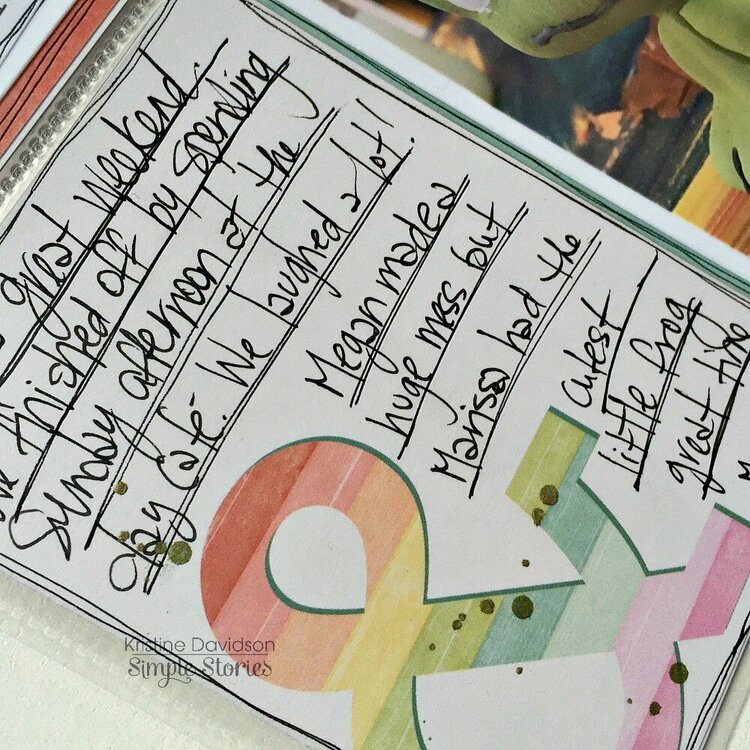 great weekend.
finished off by spending
Sunday afternoon at the
clay café. We laughed a lot!
Megan made a
huge mess but
Marissa had the
cutest
little frog
great time
&
Kristine Davidson
Simple Stories